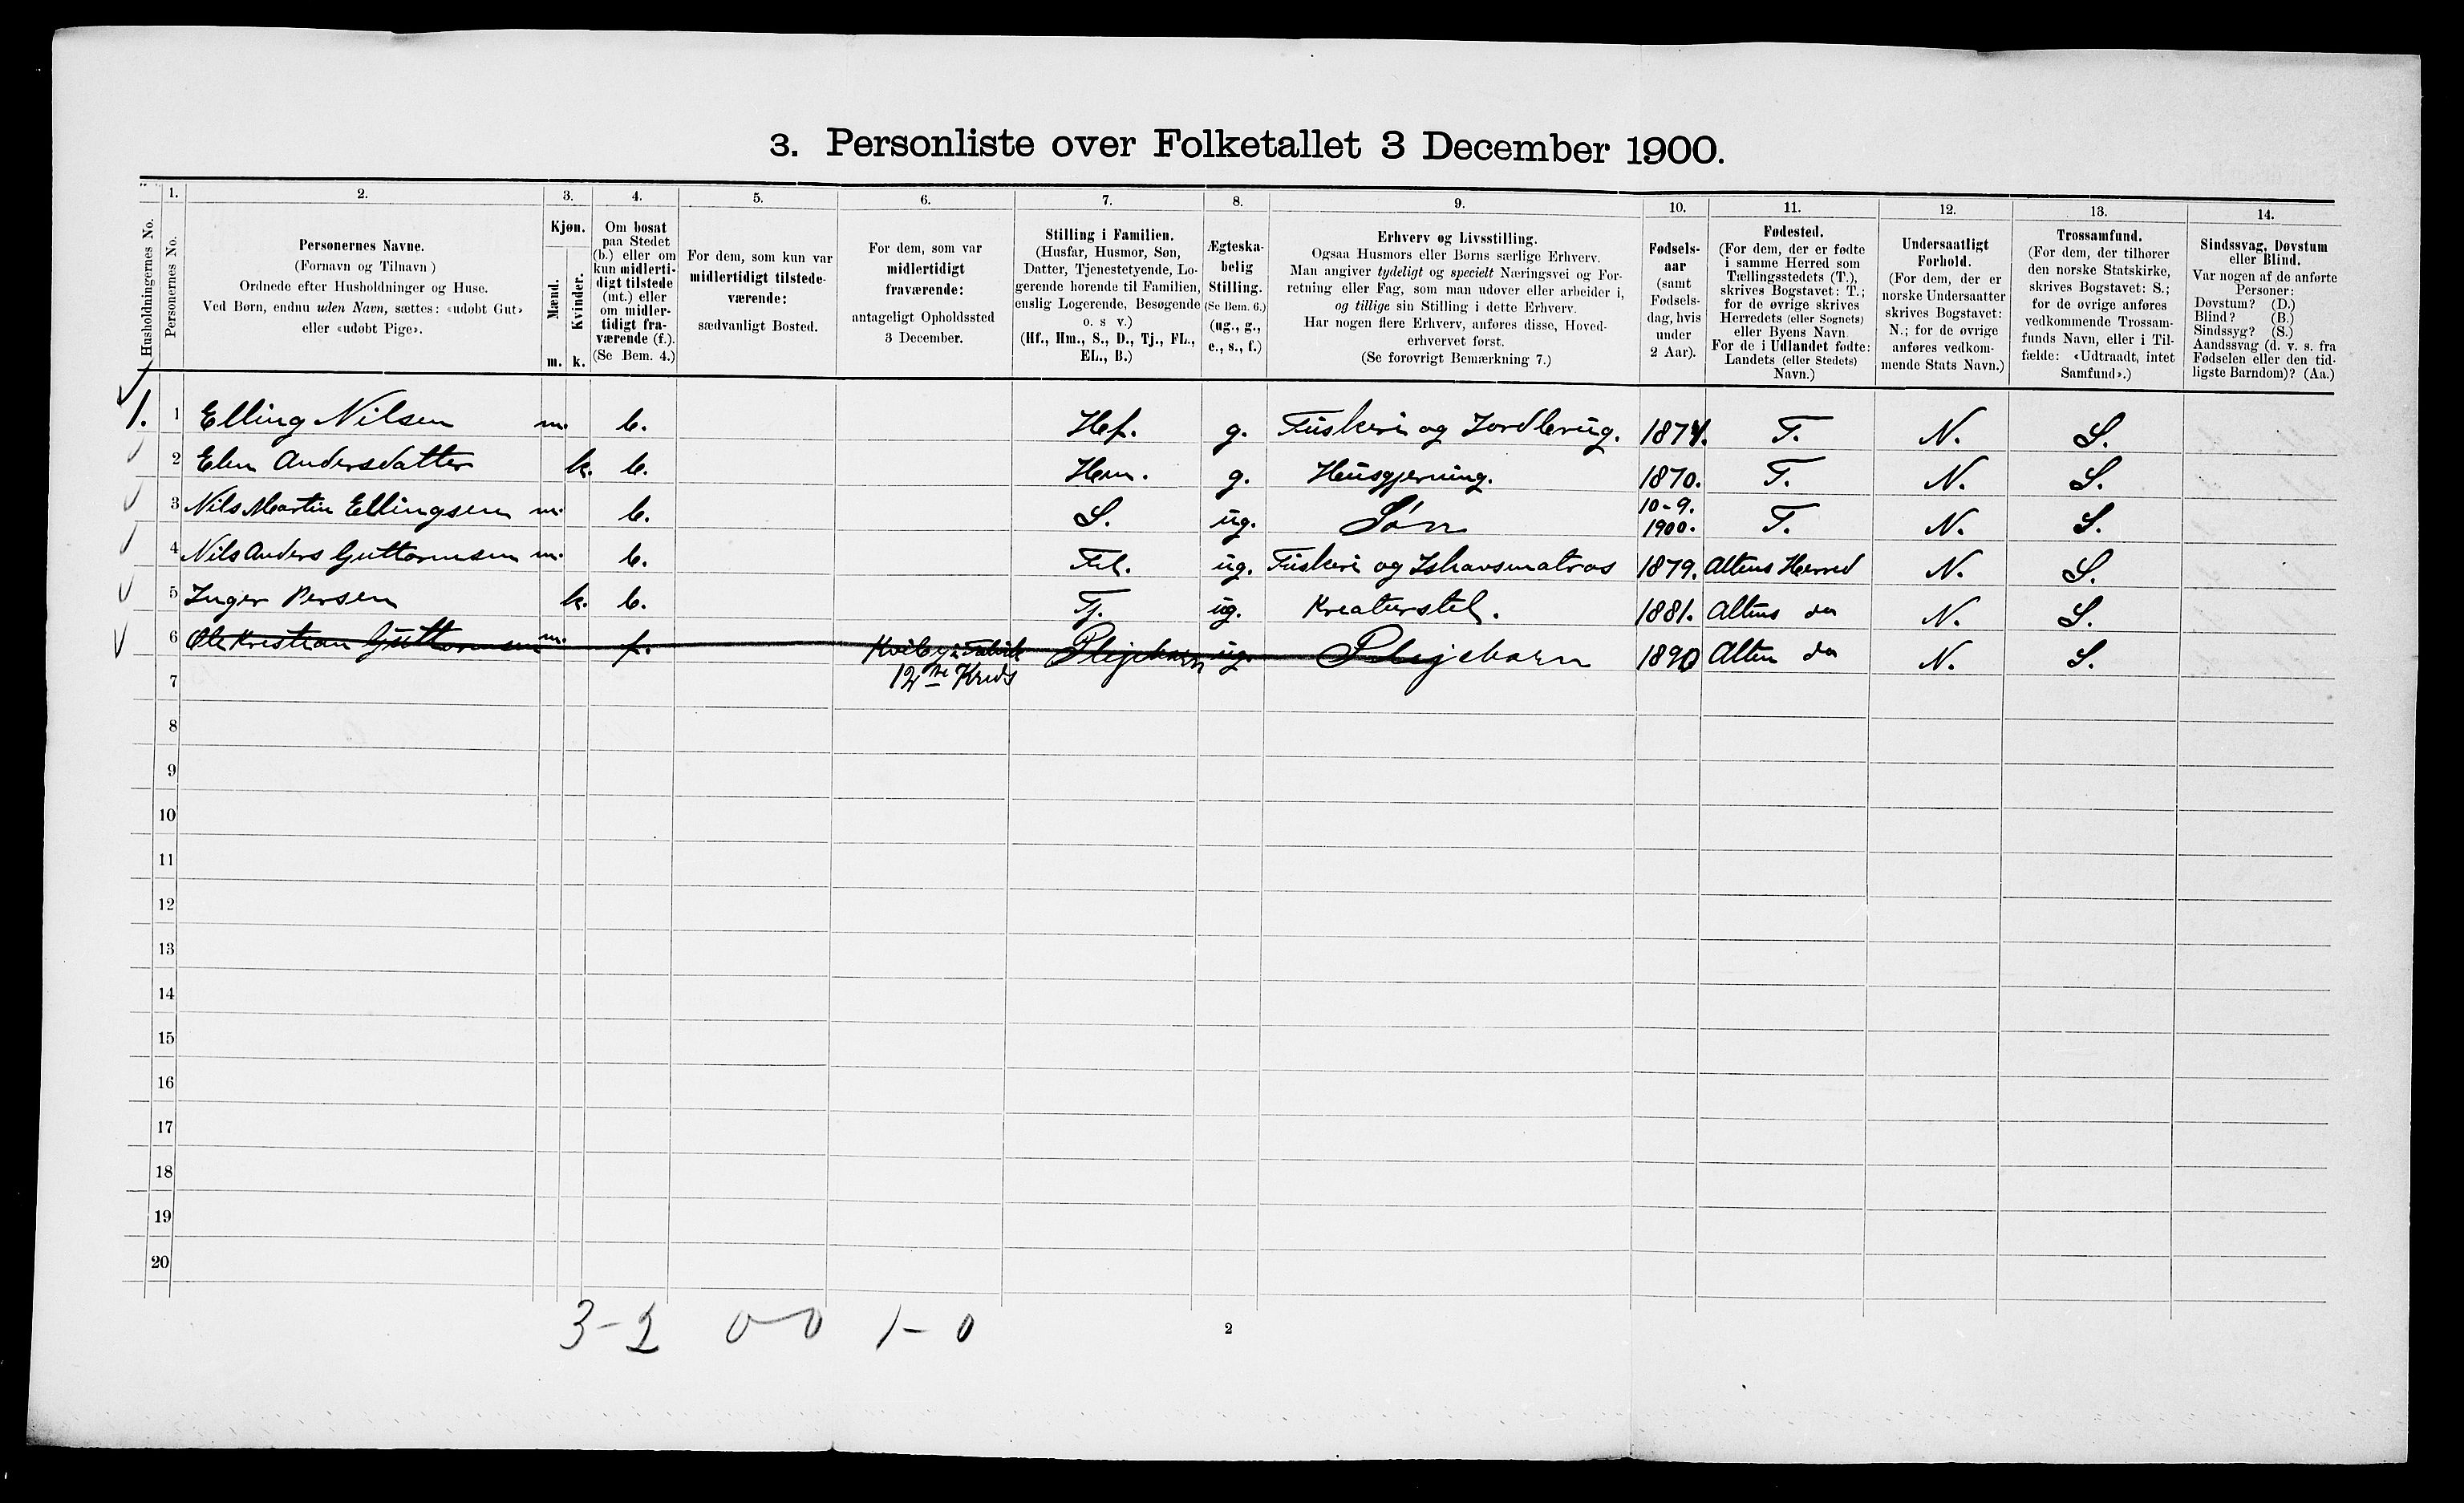 3. Personliste over Folketallet 3 December 1900.
Husholdningernes No.
1.
Personernes No.
2.
Personernes Navne.
(Fornavn og Tilnavn)
Ordnede efter Husholdninger og Huse.
Ved Børn, endnu uden Navn, sættes: «udøbt Gut»
eller «udøbt Pige».
3.
Kjøn.
Mænd.
Kvinder.
m. k.
4.
Om bosat
paa Stedet
(b.) eller om
kun midlerti-
digt tilstede
(mt.) eller
om midler-
tidigt fra-
værende (f.).
(Se Bem. 4.)
5.
For dem, som kun var
midlertidigt tilstede-
værende:
sædvanligt Bosted.
6.
For dem, som var
midlertidigt
fraværende:
antageligt Opholdssted
3 December.
7.
Stilling i Familien.
(Husfar, Husmor, Søn,
Datter, Tjenestetyende, Lo-
gerende hørende til Familien,
enslig Logerende, Besøgende
o. s v.)
(Hf., Hm., S., D., Tj., FL.,
EL., B.)
8.
Ægteska-
belig
Stilling.
(Se Bem. 6.)
(ug., g.,
e., s., f.)
9.
Erhverv og Livsstilling.
Ogsaa Husmors eller Børns særlige Erhverv.
Man angiver tydeligt og specielt Næringsvei og For-
retning eller Fag, som man udøver eller arbeider i,
og tillige sin Stilling i dette Erhverv.
Har nogen flere Erhverv, anføres disse, Hoved-
erhvervet først.
(Se forøvrigt Bemærkning 7.)
10.
Fødsels-
aar
(samt
Fødsels-
dag, hvis
under
2 Aar).
11.
Fødested.
(For dem, der er fødte
i samme Herred som
Tællingsstedets (T.),
skrives Bogstavet: T.;
for de øvrige skrives
Herredets (eller Sognets)
eller Byens Navn
For de i Udlandet fødte:
Landets (eller Stedets)
Navn.)
12.
Undersaatligt
Forhold.
(For dem, der er
norske Undersaatter
skrives Bogstavet:
N.; for de øvrige
anføres vedkom-
mende Stats Navn.)
13.
Trossamfund.
(For dem, der tilhører
den norske Statskirke,
skrives Bogstavet: S.;
for de øvrige anføres
vedkommende Trossam-
funds Navn, eller i Til-
fælde: «Udtraadt, intet
Samfund».)
14.
Sindssvag, Døvstum
eller Blind.
Var nogen af de anførte
Personer:
Døvstum? (D.)
Blind? (B.)
Sindssyg? (S.)
Aandssvag (d. v. s. fra
Fødselen eller den tid-
ligste Barndom)? (Aa.)
1. 1 Elling Nilsen m. b. Hf. g. Fiskeri og Jordbrug. 1874. T. N. S.
2 Elen Andersdatter k. b. Hm. g. Husgjerning. 1870. T. N. S.
3 Nils Martin Ellingsen m. b. S. ug. Søn 10-9. 1900. T. N. S.
4 Nils Anders Guttormsen m. b. Fl. ug. Fiskeri og Ishavsmatros 1879. Altens Herred N. S.
5 Inger Persen k. b. Tj. ug. Kreaturstel. 1881. Altens do N. S.
6 Ole Kristian Guttormsen m. f. Kviby i Talvik Plejebarn ug. Plejebarn 1890 Alten do N. S.
12te Kreds
7
8
9
10
11
12
13
14
15
16
17
18
19
20
3-2 0-0 1-0
2